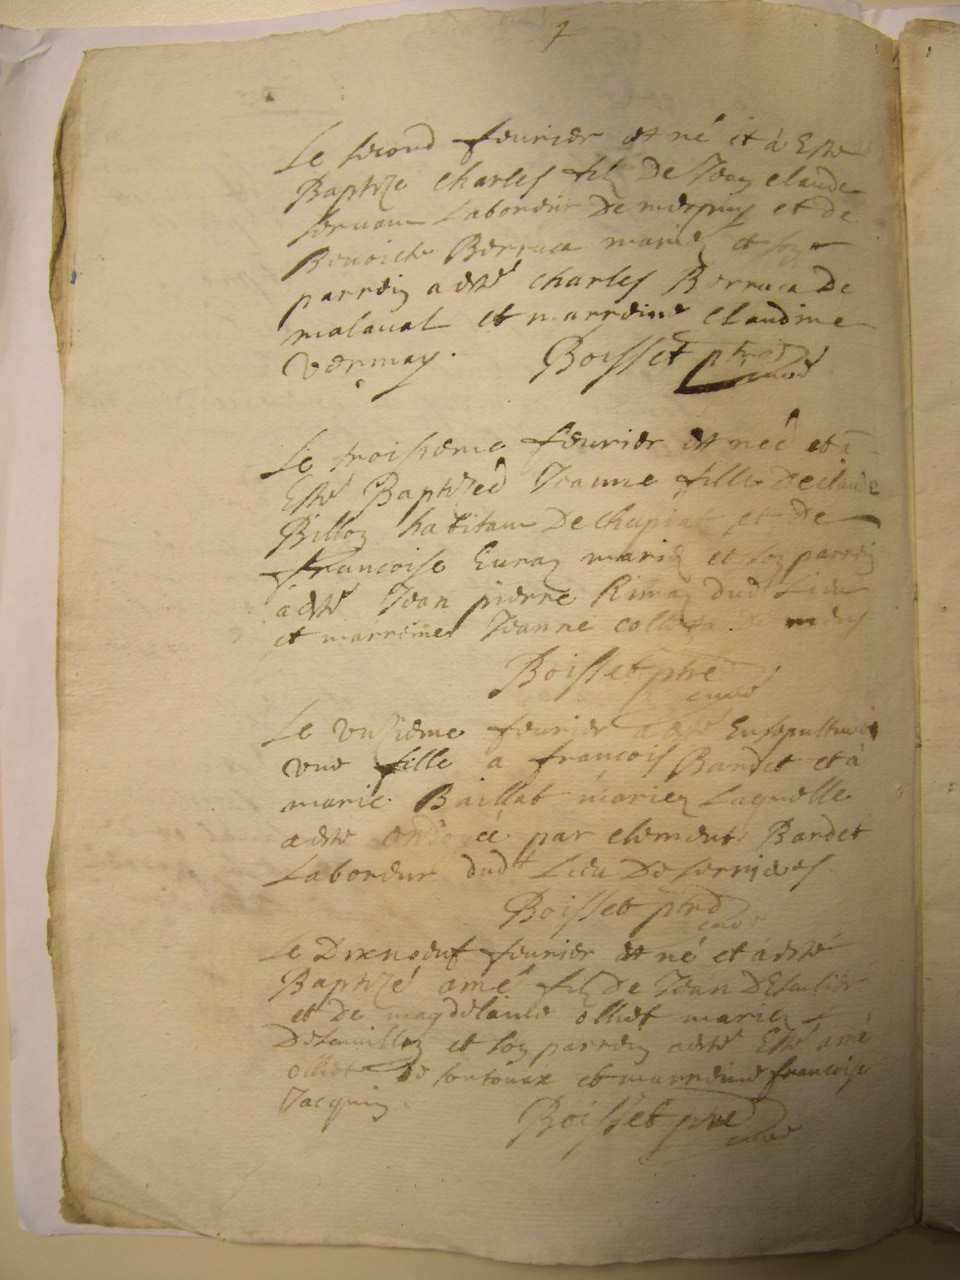 Le second feurier est né et à Esté
Baptize charles fil De Jean claude
Laboreur De et de
Benoicte Berruca mariés et son
parrein a esté charles Berruca de
malaual et marreine claudine
Vernay. Boisset ptre
curé
Le troisieme feurier est néé et à
Esté Baptizéé Jeanne fille De claude
Billon habitant De chapiat et de
francoise Euray mariés et son parrein
a esté Jean pierre dud Lieu
et marreinne Jeanne
Boisset ptre
curé
Le vnzieme feurier a esté Ensepulturéé
vne fille a francois Bardet et à
marie Baillat mariez Laquelle
a esté ondoiéé par clement Bardet
Laboreur dudt Lieu De
Boisset ptre
curé
Le Dixneuf feurier est né et a esté
Baptizé amé filz De Jean
et De magdelaine olliet mariez
et son parrein a esté amé
olliet De et marreine francoise
Jacquin.
Boisset ptre
curé